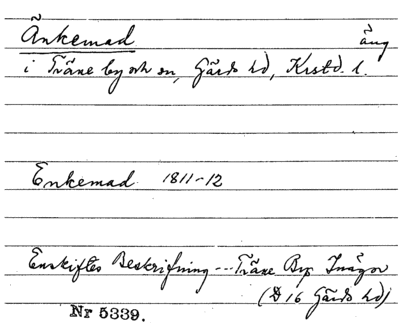 Änkemad äng
i Träne by och sn, Gärds hd, Krstd. l.
Enkemad 1811-12
Enskiftes Beskrifning --- Träne Bys Inägor
(D 16 Gärds hd)
Nr 5339.